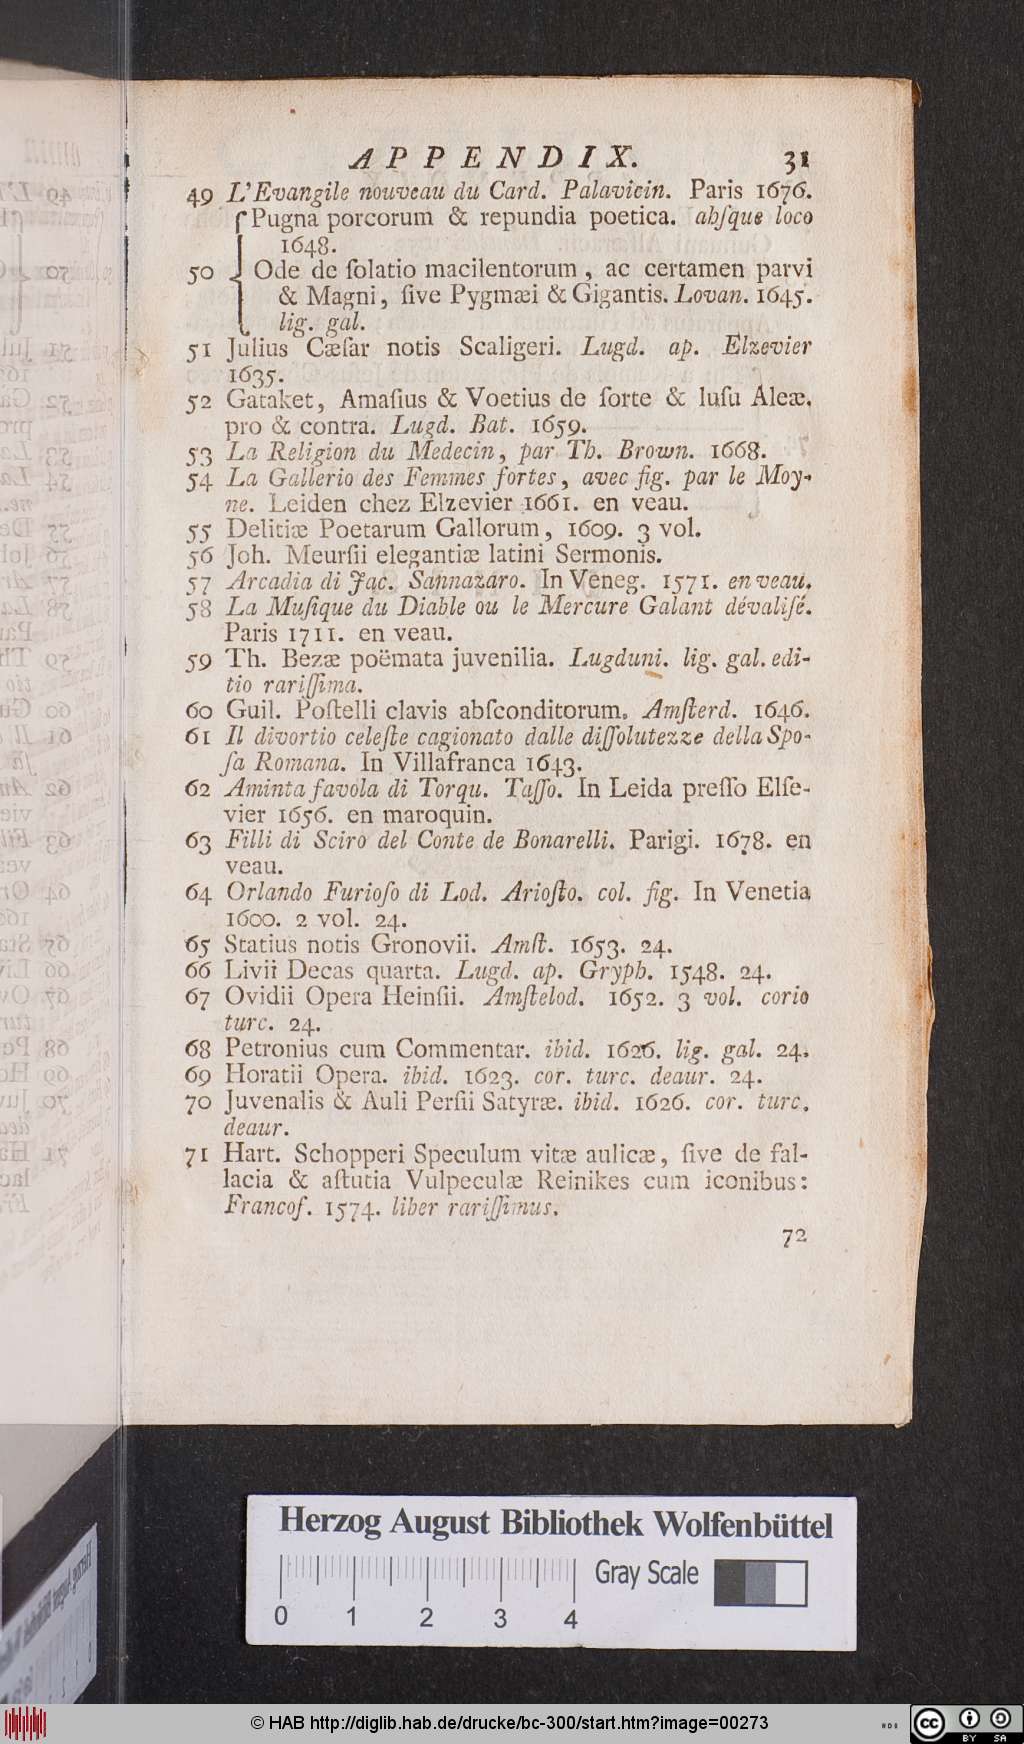 APPENDIX. 31
49 L'Evangile nouveau du Card. Palavicin. Paris 1676.
Pugna porcorum & repundia poetica. abſque loco
1648.
50 Ode de ſolatio macilentorum, ac certamen parvi
& Magni, ſive Pygmæi & Gigantis. Lovan. 1645.
lig. gal.
51 Julius Cæſar notis Scaligeri. Lugd. ap. Elzevier
1635.
52 Gataket, Amaſius & Voetius de ſorte & luſu Aleæ.
pro & contra. Lugd. Bat. 1659.
53 La Religion du Medecin, par Th. Brown. 1668.
54 La Gallerio des Femmes fortes, avec fig. par le Moy-
ne. Leiden chez Elzevier 1661. en veau.
55 Delitiæ Poetarum Gallorum, 1609. 3 vol.
56 Joh. Meurſii elegantiæ latini Sermonis.
57 Arcadia di Jac. Sannazaro. In Veneg. 1571. en veau.
58 La Muſique du Diable ou le Mercure Galant dévaliſé.
Paris 1711. en veau.
59 Th. Bezæ poëmata juvenilia. Lugduni. lig. gal. edi-
tio rariſſima.
60 Guil. Poſtelli clavis abſconditorum. Amſterd. 1646.
61 Il divortio celeſte cagionato dalle diſſolutezze della Spo-
ſa Romana. In Villafranca 1643.
62 Aminta favola di Torqu. Taſſo. In Leida preſſo Elſe-
vier 1656. en maroquin.
63 Filli di Sciro del Conte de Bonarelli. Parigi. 1678. en
veau.
64 Orlando Furioſo di Lod. Arioſto. col. fig. In Venetia
1600. 2 vol. 24.
65 Statius notis Gronovii. Amſt. 1653. 24.
66 Livii Decas quarta. Lugd. ap. Gryph. 1548. 24.
67 Ovidii Opera Heinſii. Amſtelod. 1652. 3 vol. corio
turc. 24.
68 Petronius cum Commentar. ibid. 1626. lig. gal. 24.
69 Horatii Opera. ibid. 1623. cor. turc. deaur. 24.
70 Juvenalis & Auli Perſii Satyræ. ibid. 1626. cor. turc.
deaur.
71 Hart. Schopperi Speculum vitæ aulicæ, ſive de fal-
lacia & aſtutia Vulpeculæ Reinikes cum iconibus:
Francof. 1574. liber rariſſimus.
72
Herzog August Bibliothek Wolfenbüttel
Gray Scale
0 1 2 3 4
© HAB http://diglib.hab.de/drucke/bc-300/start.htm?image=00273
cc BY SA